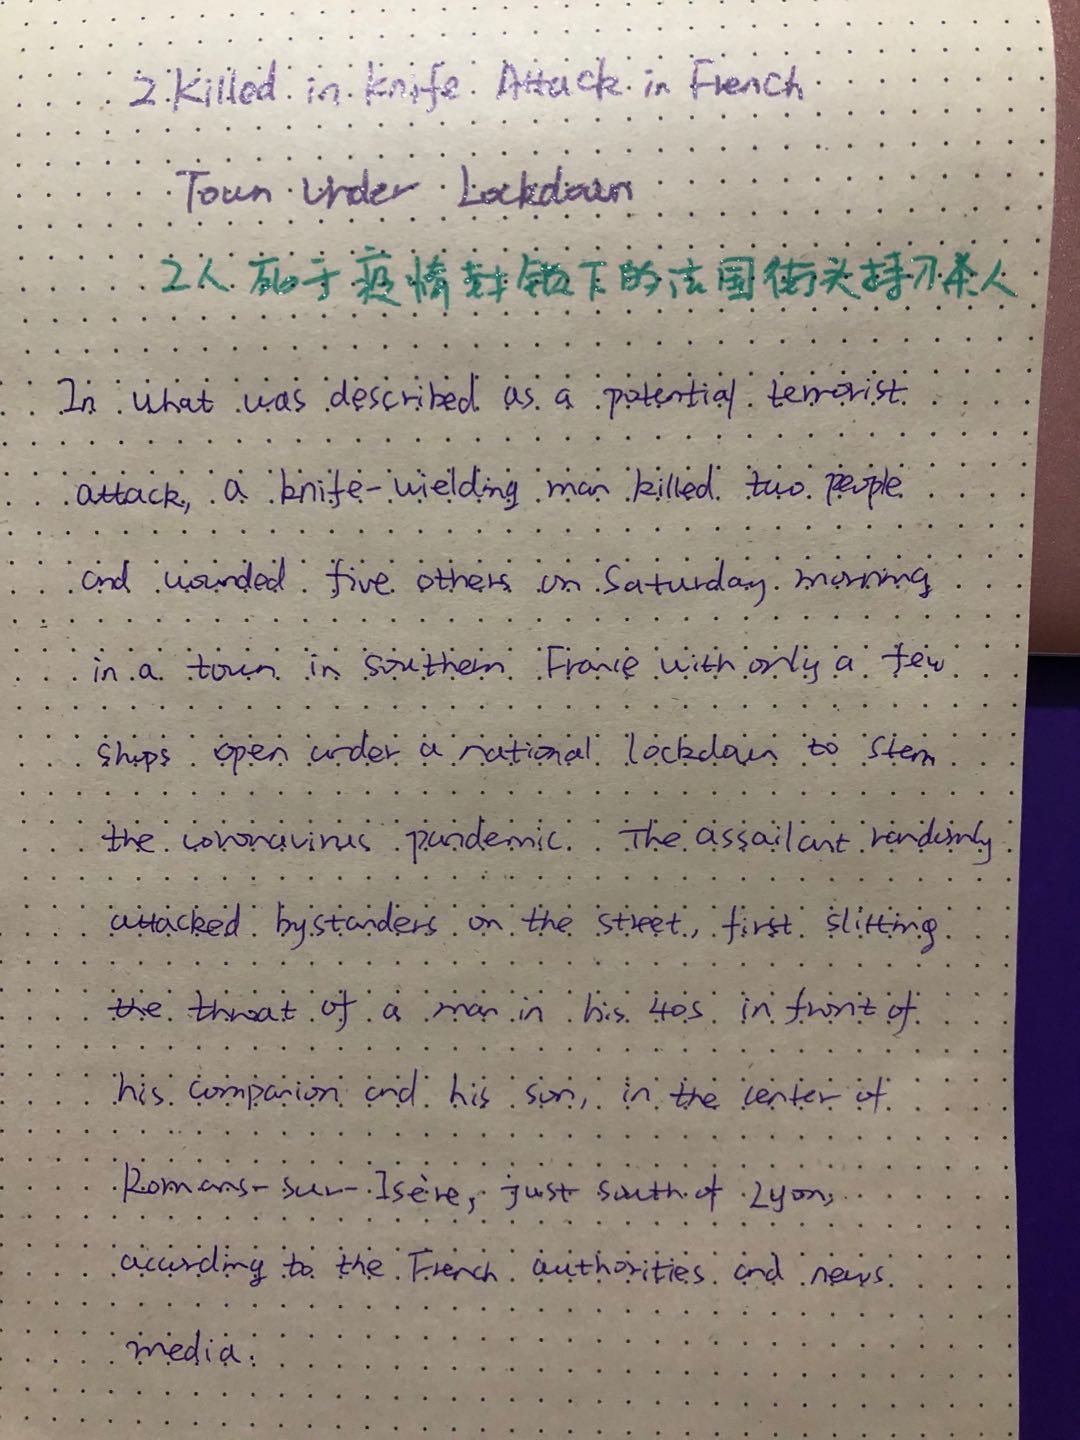 2 Killed in Knife Attack in French
Town Under Lockdown
2人死于疫情封锁下的法国街头持刀杀人
In what was described as a potential terrorist
attack, a knife-wielding man killed two people
and wounded five others on Saturday morning
in a town in southern France with only a few
shops open under a national lockdown to stem
the coronavirus pandemic. The assailant randomly
attacked bystanders on the street, first slitting
the throat of a man in his 40s in front of
his companion and his son, in the center of
Romans-sur-Isère, just south of Lyon,
according to the French authorities and news
media.